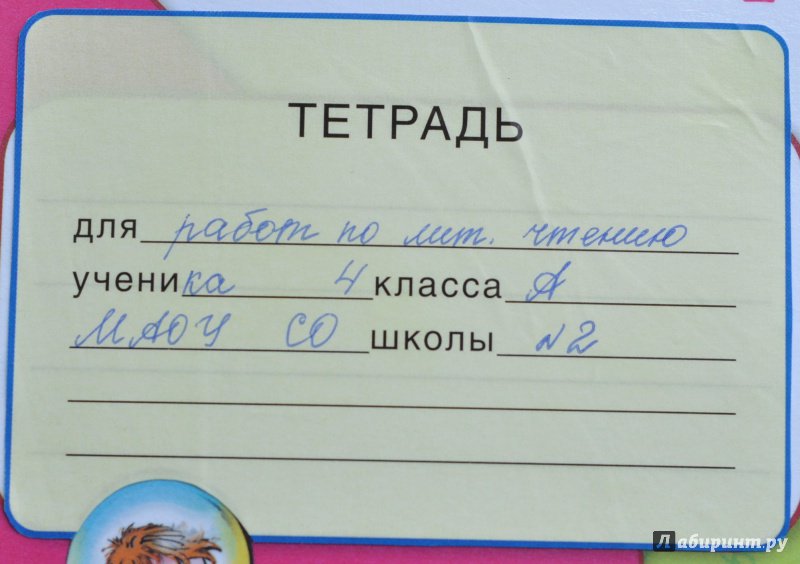 ТЕТРАДЬ
для работ по лит. чтению
ученика 4 класса А
МАОУ СО школы №2
Лабиринт.ру